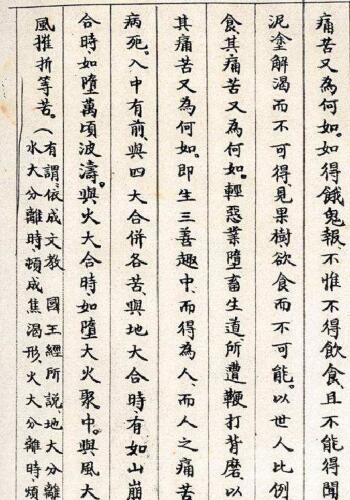 痛苦又為何如。如得餓鬼報、不惟不得飲食、且不能得聞
泥塗解渴而不可得、見果樹、欲食而不可能。以世人比例
食、其痛苦又為何如。輕惡業墮畜生道所遭鞭打背磨、以
其痛苦又為何如。即生三善趣中、而得為人、而人之痛苦
病死。入中有前、與四大合併各苦、與地大合時、有如山崩
合時、如墮萬頃波濤。與火大合時、如墮大火聚中。與風大
風摧折等苦。（有謂、依成文教 國王經所說地大分離
水大分離時、頓成焦渴形、火大分離時、頓